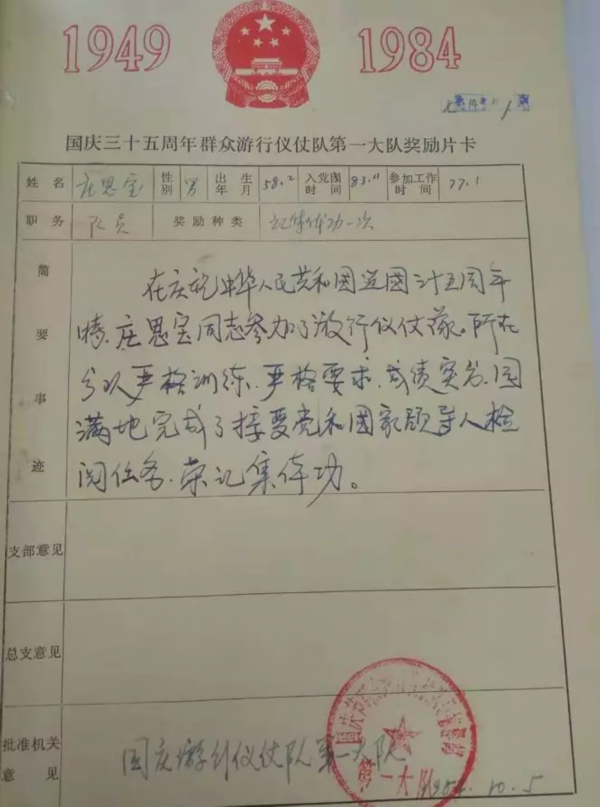 1949 1984
国庆三十五周年群众游行仪仗队第一大队奖励片卡
姓名 庄思宝 性别 男 出生年月 58.2 入党团时间 83.11 参加工作时间 77.1
职务 队员 奖励种类 记集体功一次
简要事迹
在庆祝中华人民共和国建国三十五周年
时、庄思宝同志参加了游行仪仗队。所在
分队严格训练、严格要求、成绩突出、圆
满地完成了接受党和国家领导人检
阅任务、荣记集体功。
支部意见
总支意见
批准机关意见
国庆游行仪仗队第一大队
1984.10.5
第一大队